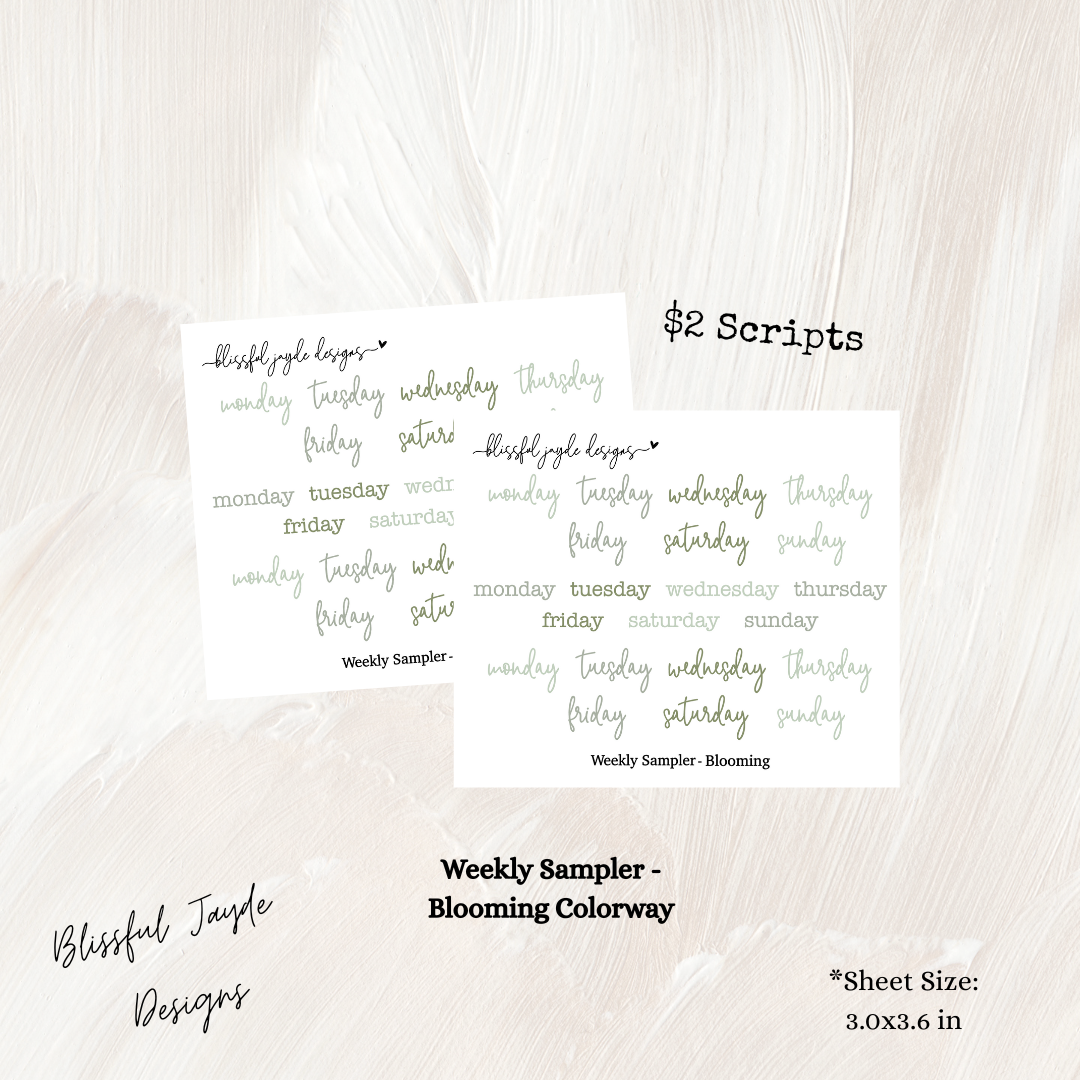 $2 Scripts
blissful jayde designs
monday tuesday wednesday thursday
friday saturd
monday tuesday wedn
friday saturday
monday tuesday wedn
friday satur
Weekly Sampler -
blissful jayde designs
monday tuesday wednesday thursday
friday saturday sunday
monday tuesday wednesday thursday
friday saturday sunday
monday tuesday wednesday thursday
friday saturday sunday
Weekly Sampler - Blooming
Weekly Sampler -
Blooming Colorway
Blissful Jayde
Designs
*Sheet Size:
3.0x3.6 in